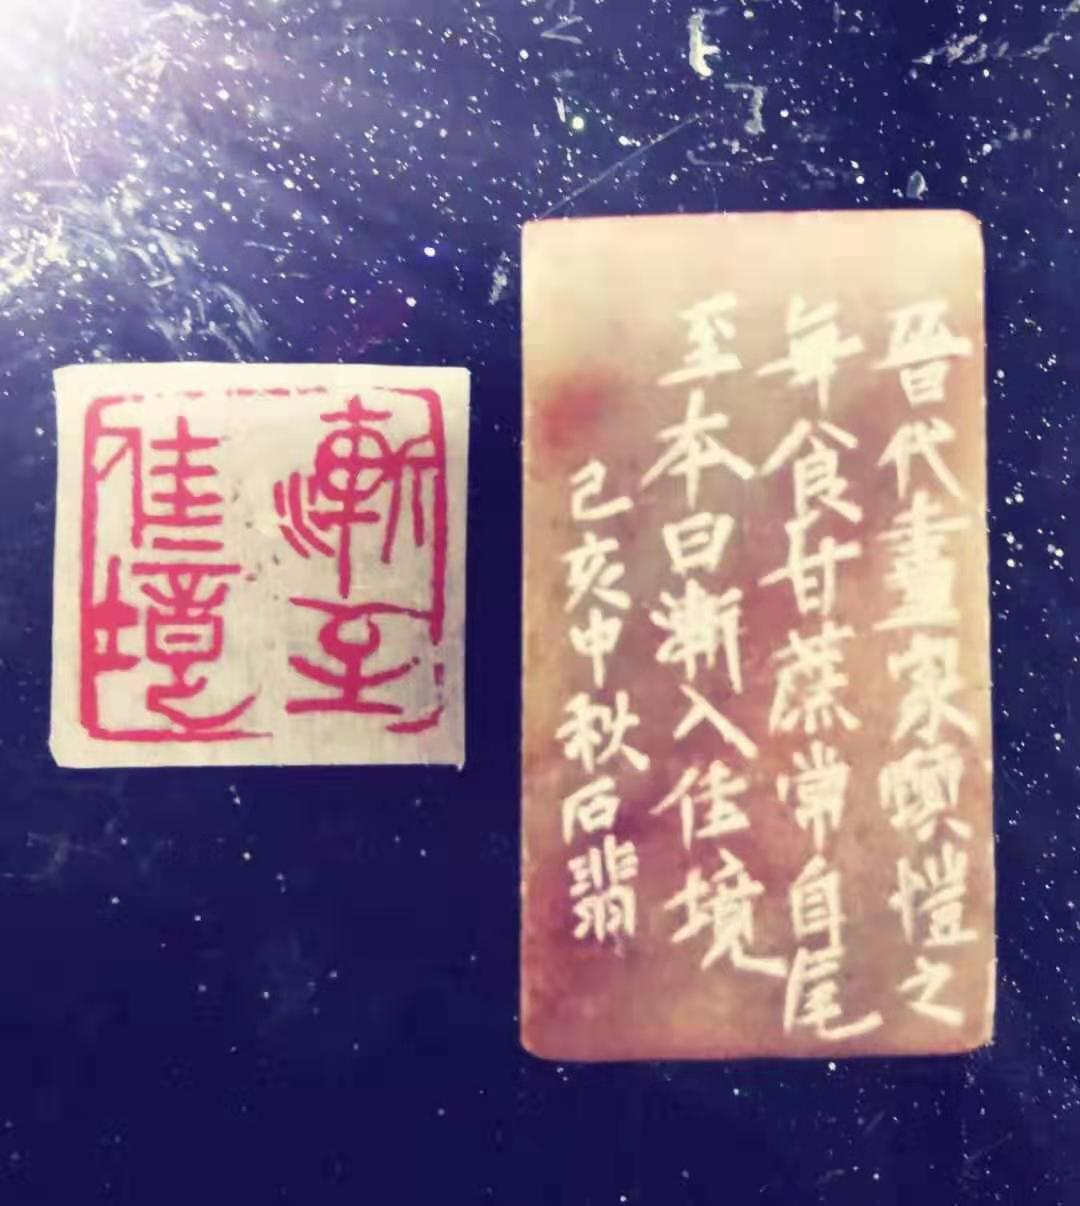 漸至
佳境
晉代畫家顧愷之
每食甘蔗常自尾
至本曰漸入佳境
己亥中秋石翡